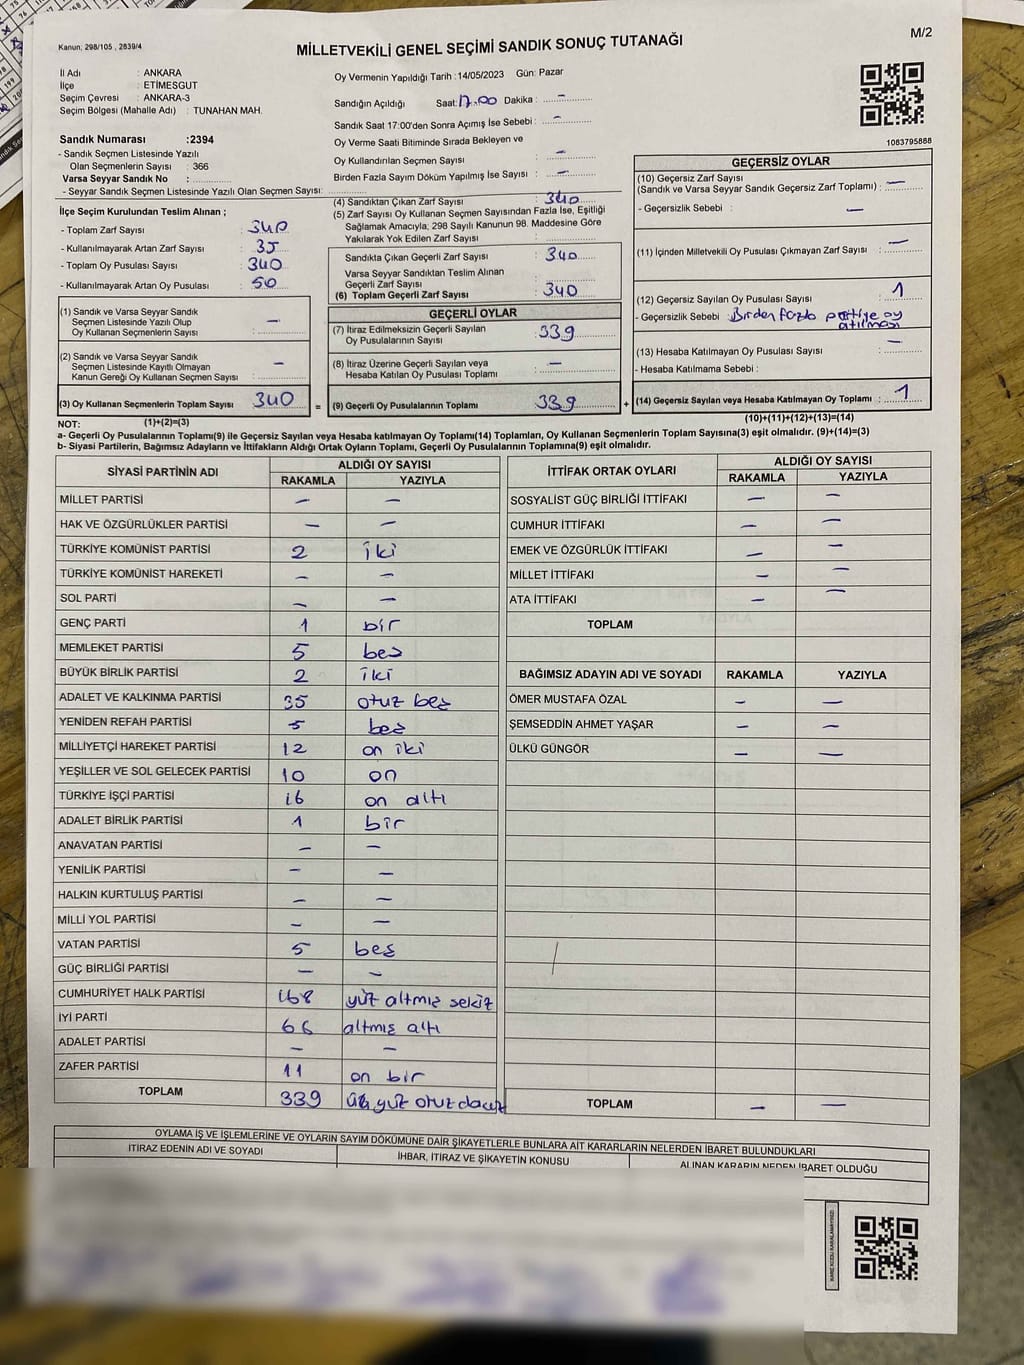 Kanun; 298/105 , 2839/4
MİLLETVEKİLİ GENEL SEÇİMİ SANDIK SONUÇ TUTANAĞI
M/2
İl Adı : ANKARA
İlçe : ETİMESGUT
Seçim Çevresi : ANKARA-3
Seçim Bölgesi (Mahalle Adı) : TUNAHAN MAH.
Sandık Numarası :2394
- Sandık Seçmen Listesinde Yazılı
Olan Seçmenlerin Sayısı : 366
Varsa Seyyar Sandık No :
- Seyyar Sandık Seçmen Listesinde Yazılı Olan Seçmen Sayısı:
Oy Vermenin Yapıldığı Tarih :14/05/2023 Gün: Pazar
Sandığın Açıldığı Saat: 17.00 Dakika : —
Sandık Saat 17:00'den Sonra Açımış İse Sebebi : —
Oy Verme Saati Bitiminde Sırada Bekleyen ve
Oy Kullandırılan Seçmen Sayısı : —
Birden Fazla Sayım Döküm Yapılmış İse Sayısı : —
1083795888
İlçe Seçim Kurulundan Teslim Alınan ;
- Toplam Zarf Sayısı : 340
- Kullanılmayarak Artan Zarf Sayısı : 35
- Toplam Oy Pusulası Sayısı : 340
- Kullanılmayarak Artan Oy Pusulası : 50
(1) Sandık ve Varsa Seyyar Sandık
Seçmen Listesinde Yazılı Olup
Oy Kullanan Seçmenlerin Sayısı : —
(2) Sandık ve Varsa Seyyar Sandık
Seçmen Listesinde Kayıtlı Olmayan
Kanun Gereği Oy Kullanan Seçmen Sayısı : —
(3) Oy Kullanan Seçmenlerin Toplam Sayısı 340 =
(1)+(2)=(3)
(4) Sandıktan Çıkan Zarf Sayısı : 340
(5) Zarf Sayısı Oy Kullanan Seçmen Sayısından Fazla İse, Eşitliği
Sağlamak Amacıyla; 298 Sayılı Kanunun 98. Maddesine Göre
Yakılarak Yok Edilen Zarf Sayısı :
Sandıkta Çıkan Geçerli Zarf Sayısı : 340
Varsa Seyyar Sandıktan Teslim Alınan
Geçerli Zarf Sayısı :
(6) Toplam Geçerli Zarf Sayısı : 340
GEÇERLİ OYLAR
(7) İtiraz Edilmeksizin Geçerli Sayılan
Oy Pusulalarının Sayısı : 339
(8) İtiraz Üzerine Geçerli Sayılan veya
Hesaba Katılan Oy Pusulası Toplamı : —
(9) Geçerli Oy Pusulalarının Toplamı : 339 +
GEÇERSİZ OYLAR
(10) Geçersiz Zarf Sayısı
(Sandık ve Varsa Seyyar Sandık Geçersiz Zarf Toplamı) : —
- Geçersizlik Sebebi : —
(11) İçinden Milletvekili Oy Pusulası Çıkmayan Zarf Sayısı : —
(12) Geçersiz Sayılan Oy Pusulası Sayısı : 1
- Geçersizlik Sebebi : Birden fazla partiye oy
atılması
(13) Hesaba Katılmayan Oy Pusulası Sayısı : —
- Hesaba Katılmama Sebebi :
(14) Geçersiz Sayılan veya Hesaba Katılmayan Oy Toplamı : 1
(10)+(11)+(12)+(13)=(14)
NOT:
a- Geçerli Oy Pusulalarının Toplamı(9) ile Geçersiz Sayılan veya Hesaba katılmayan Oy Toplamı(14) Toplamları, Oy Kullanan Seçmenlerin Toplam Sayısına(3) eşit olmalıdır. (9)+(14)=(3)
b- Siyasi Partilerin, Bağımsız Adayların ve İttifakların Aldığı Ortak Oyların Toplamı, Geçerli Oy Pusulalarının Toplamına(9) eşit olmalıdır.
SİYASİ PARTİNİN ADI ALDIĞI OY SAYISI
RAKAMLA YAZIYLA
MİLLET PARTİSİ — —
HAK VE ÖZGÜRLÜKLER PARTİSİ — —
TÜRKİYE KOMÜNİST PARTİSİ 2 iki
TÜRKİYE KOMÜNİST HAREKETİ — —
SOL PARTİ — —
GENÇ PARTİ 1 bir
MEMLEKET PARTİSİ 5 beş
BÜYÜK BİRLİK PARTİSİ 2 iki
ADALET VE KALKINMA PARTİSİ 35 otuz beş
YENİDEN REFAH PARTİSİ 5 beş
MİLLİYETÇİ HAREKET PARTİSİ 12 on iki
YEŞİLLER VE SOL GELECEK PARTİSİ 10 on
TÜRKİYE İŞÇİ PARTİSİ 16 on altı
ADALET BİRLİK PARTİSİ 1 bir
ANAVATAN PARTİSİ — —
YENİLİK PARTİSİ — —
HALKIN KURTULUŞ PARTİSİ — —
MİLLİ YOL PARTİSİ — —
VATAN PARTİSİ 5 beş
GÜÇ BİRLİĞİ PARTİSİ — —
CUMHURİYET HALK PARTİSİ 168 yüz altmış sekiz
İYİ PARTİ 66 altmış altı
ADALET PARTİSİ — —
ZAFER PARTİSİ 11 on bir
TOPLAM 339 üç yüz otuz dokuz
İTTİFAK ORTAK OYLARI ALDIĞI OY SAYISI
RAKAMLA YAZIYLA
SOSYALİST GÜÇ BİRLİĞİ İTTİFAKI — —
CUMHUR İTTİFAKI — —
EMEK VE ÖZGÜRLÜK İTTİFAKI — —
MİLLET İTTİFAKI — —
ATA İTTİFAKI — —
TOPLAM
BAĞIMSIZ ADAYIN ADI VE SOYADI RAKAMLA YAZIYLA
ÖMER MUSTAFA ÖZAL — —
ŞEMSEDDİN AHMET YAŞAR — —
ÜLKÜ GÜNGÖR — —
TOPLAM — —
OYLAMA İŞ VE İŞLEMLERİNE VE OYLARIN SAYIM DÖKÜMÜNE DAİR ŞİKAYETLERLE BUNLARA AİT KARARLARIN NELERDEN İBARET BULUNDUKLARI
İTİRAZ EDENİN ADI VE SOYADI İHBAR, İTİRAZ VE ŞİKAYETİN KONUSU ALINAN KARARIN NEDEN İBARET OLDUĞU
KARE KODU KARALAMAYINIZ!